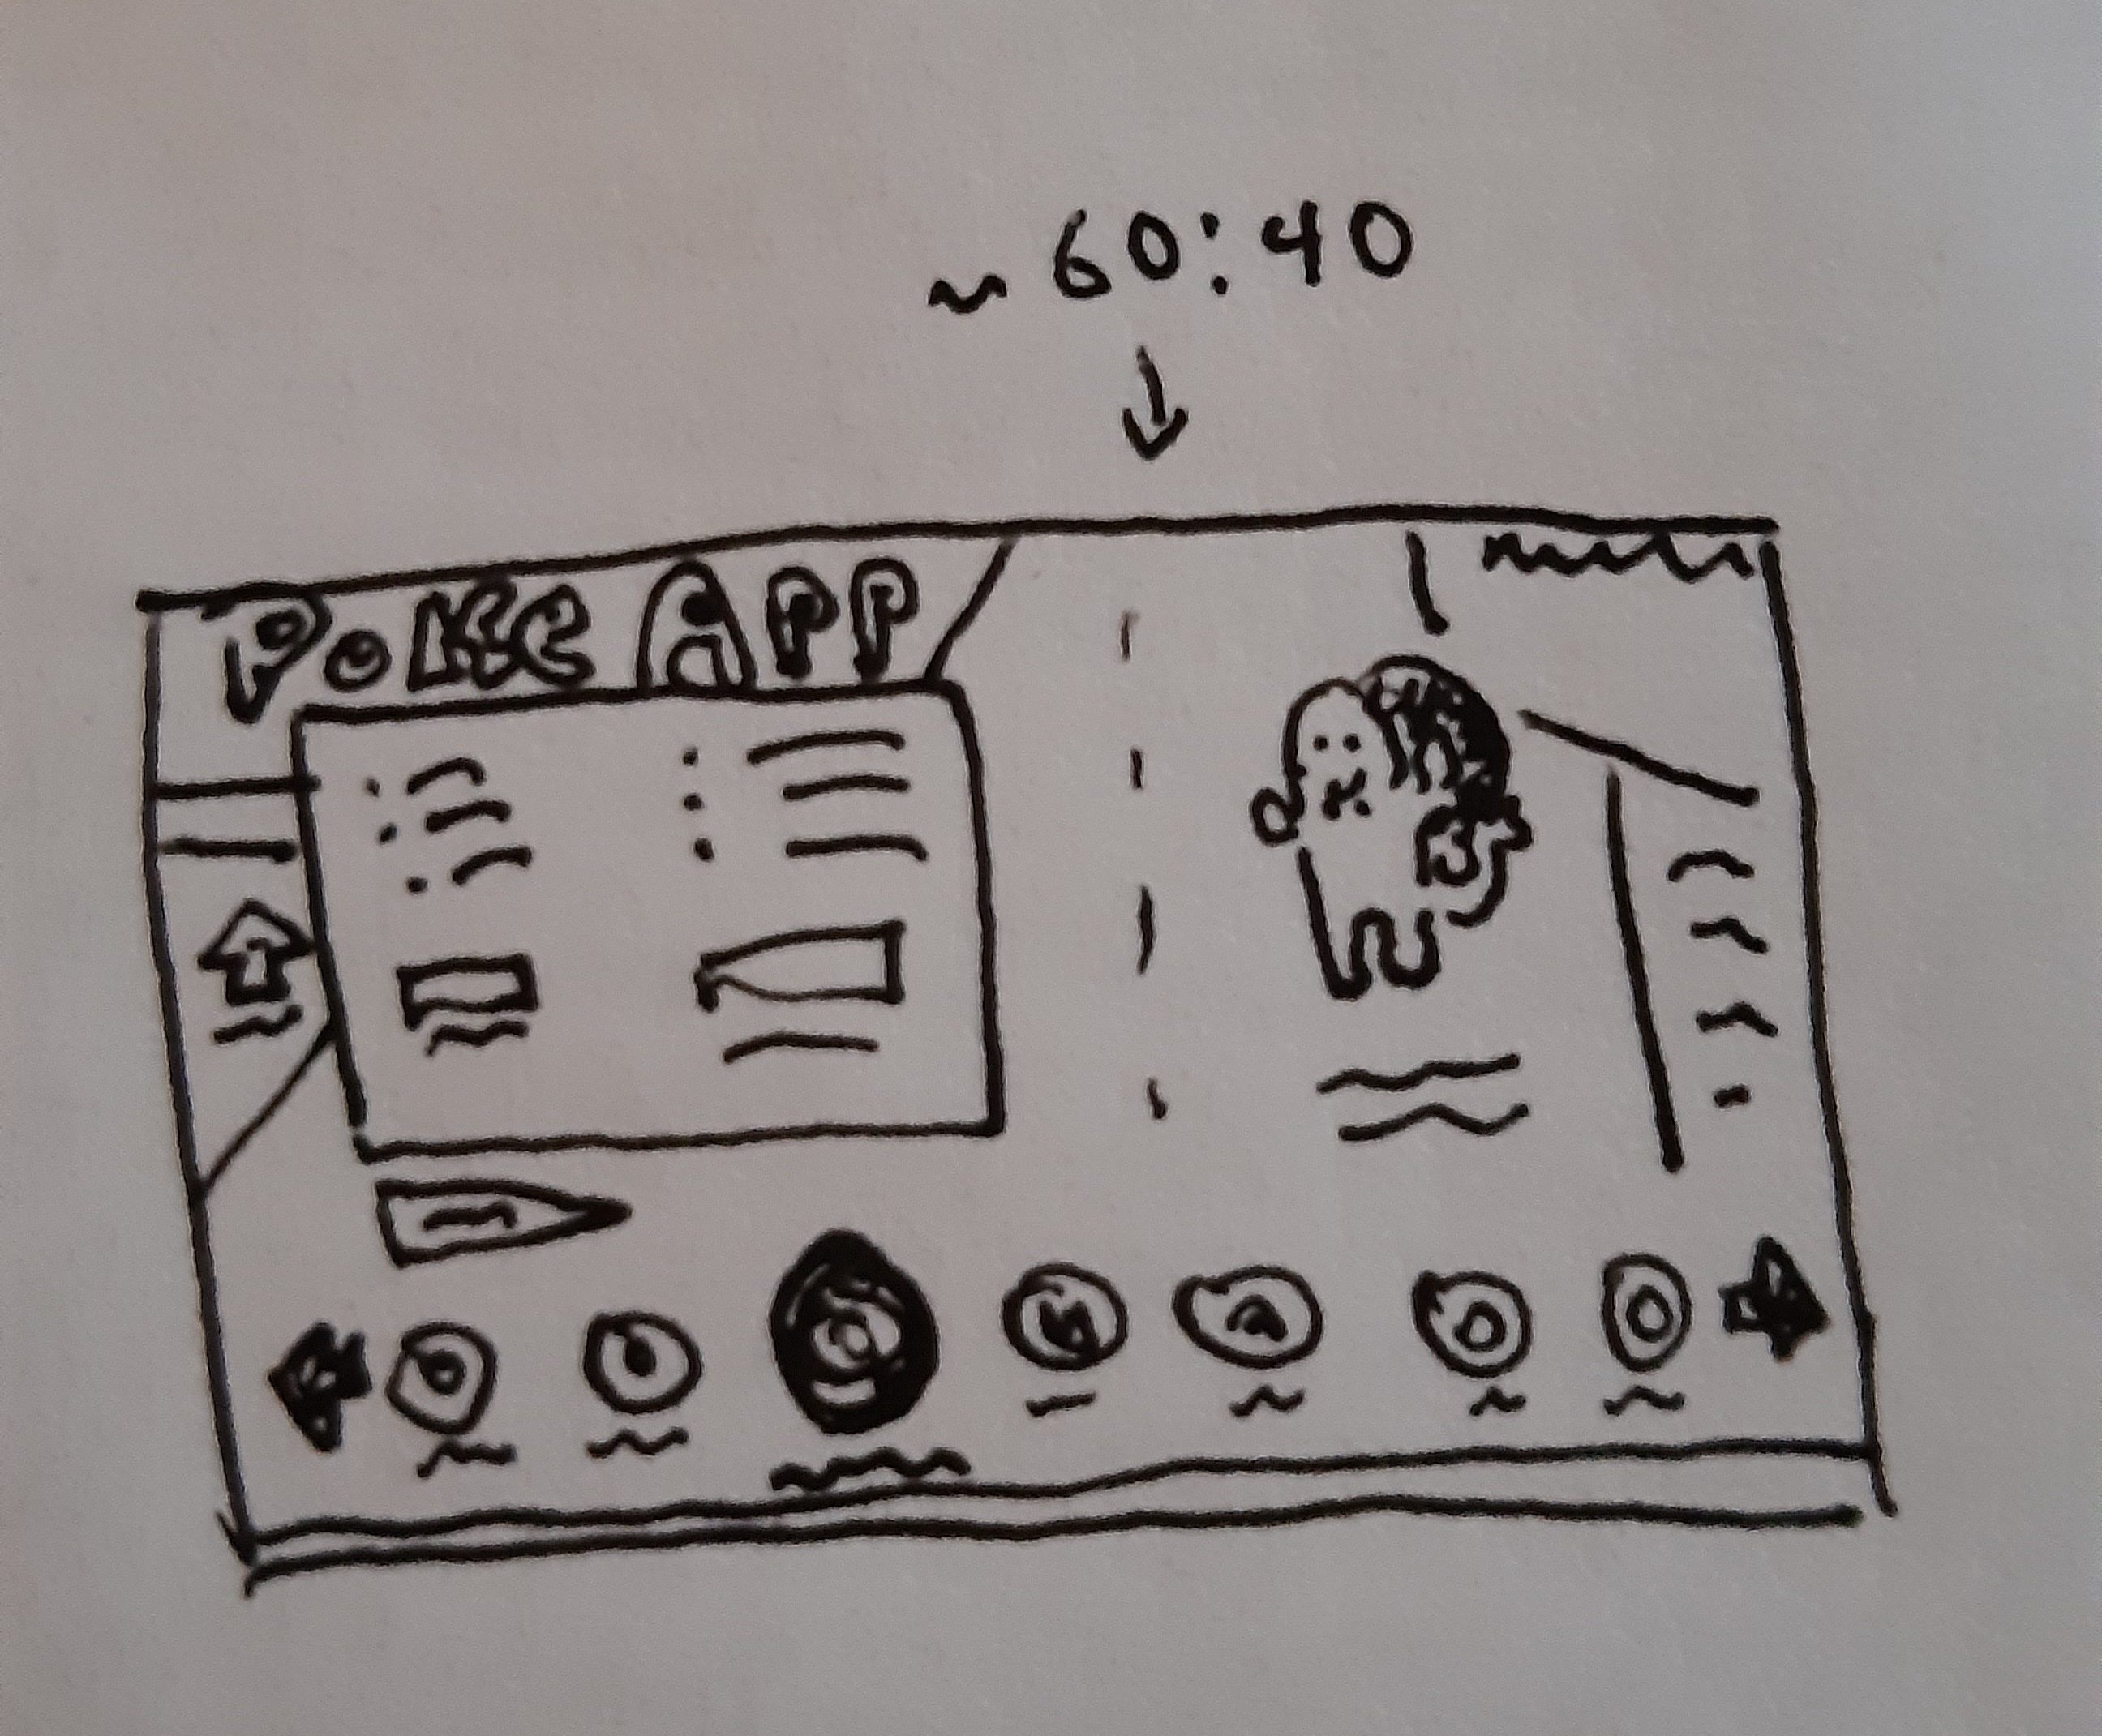 ~ 60:40
POKE APP